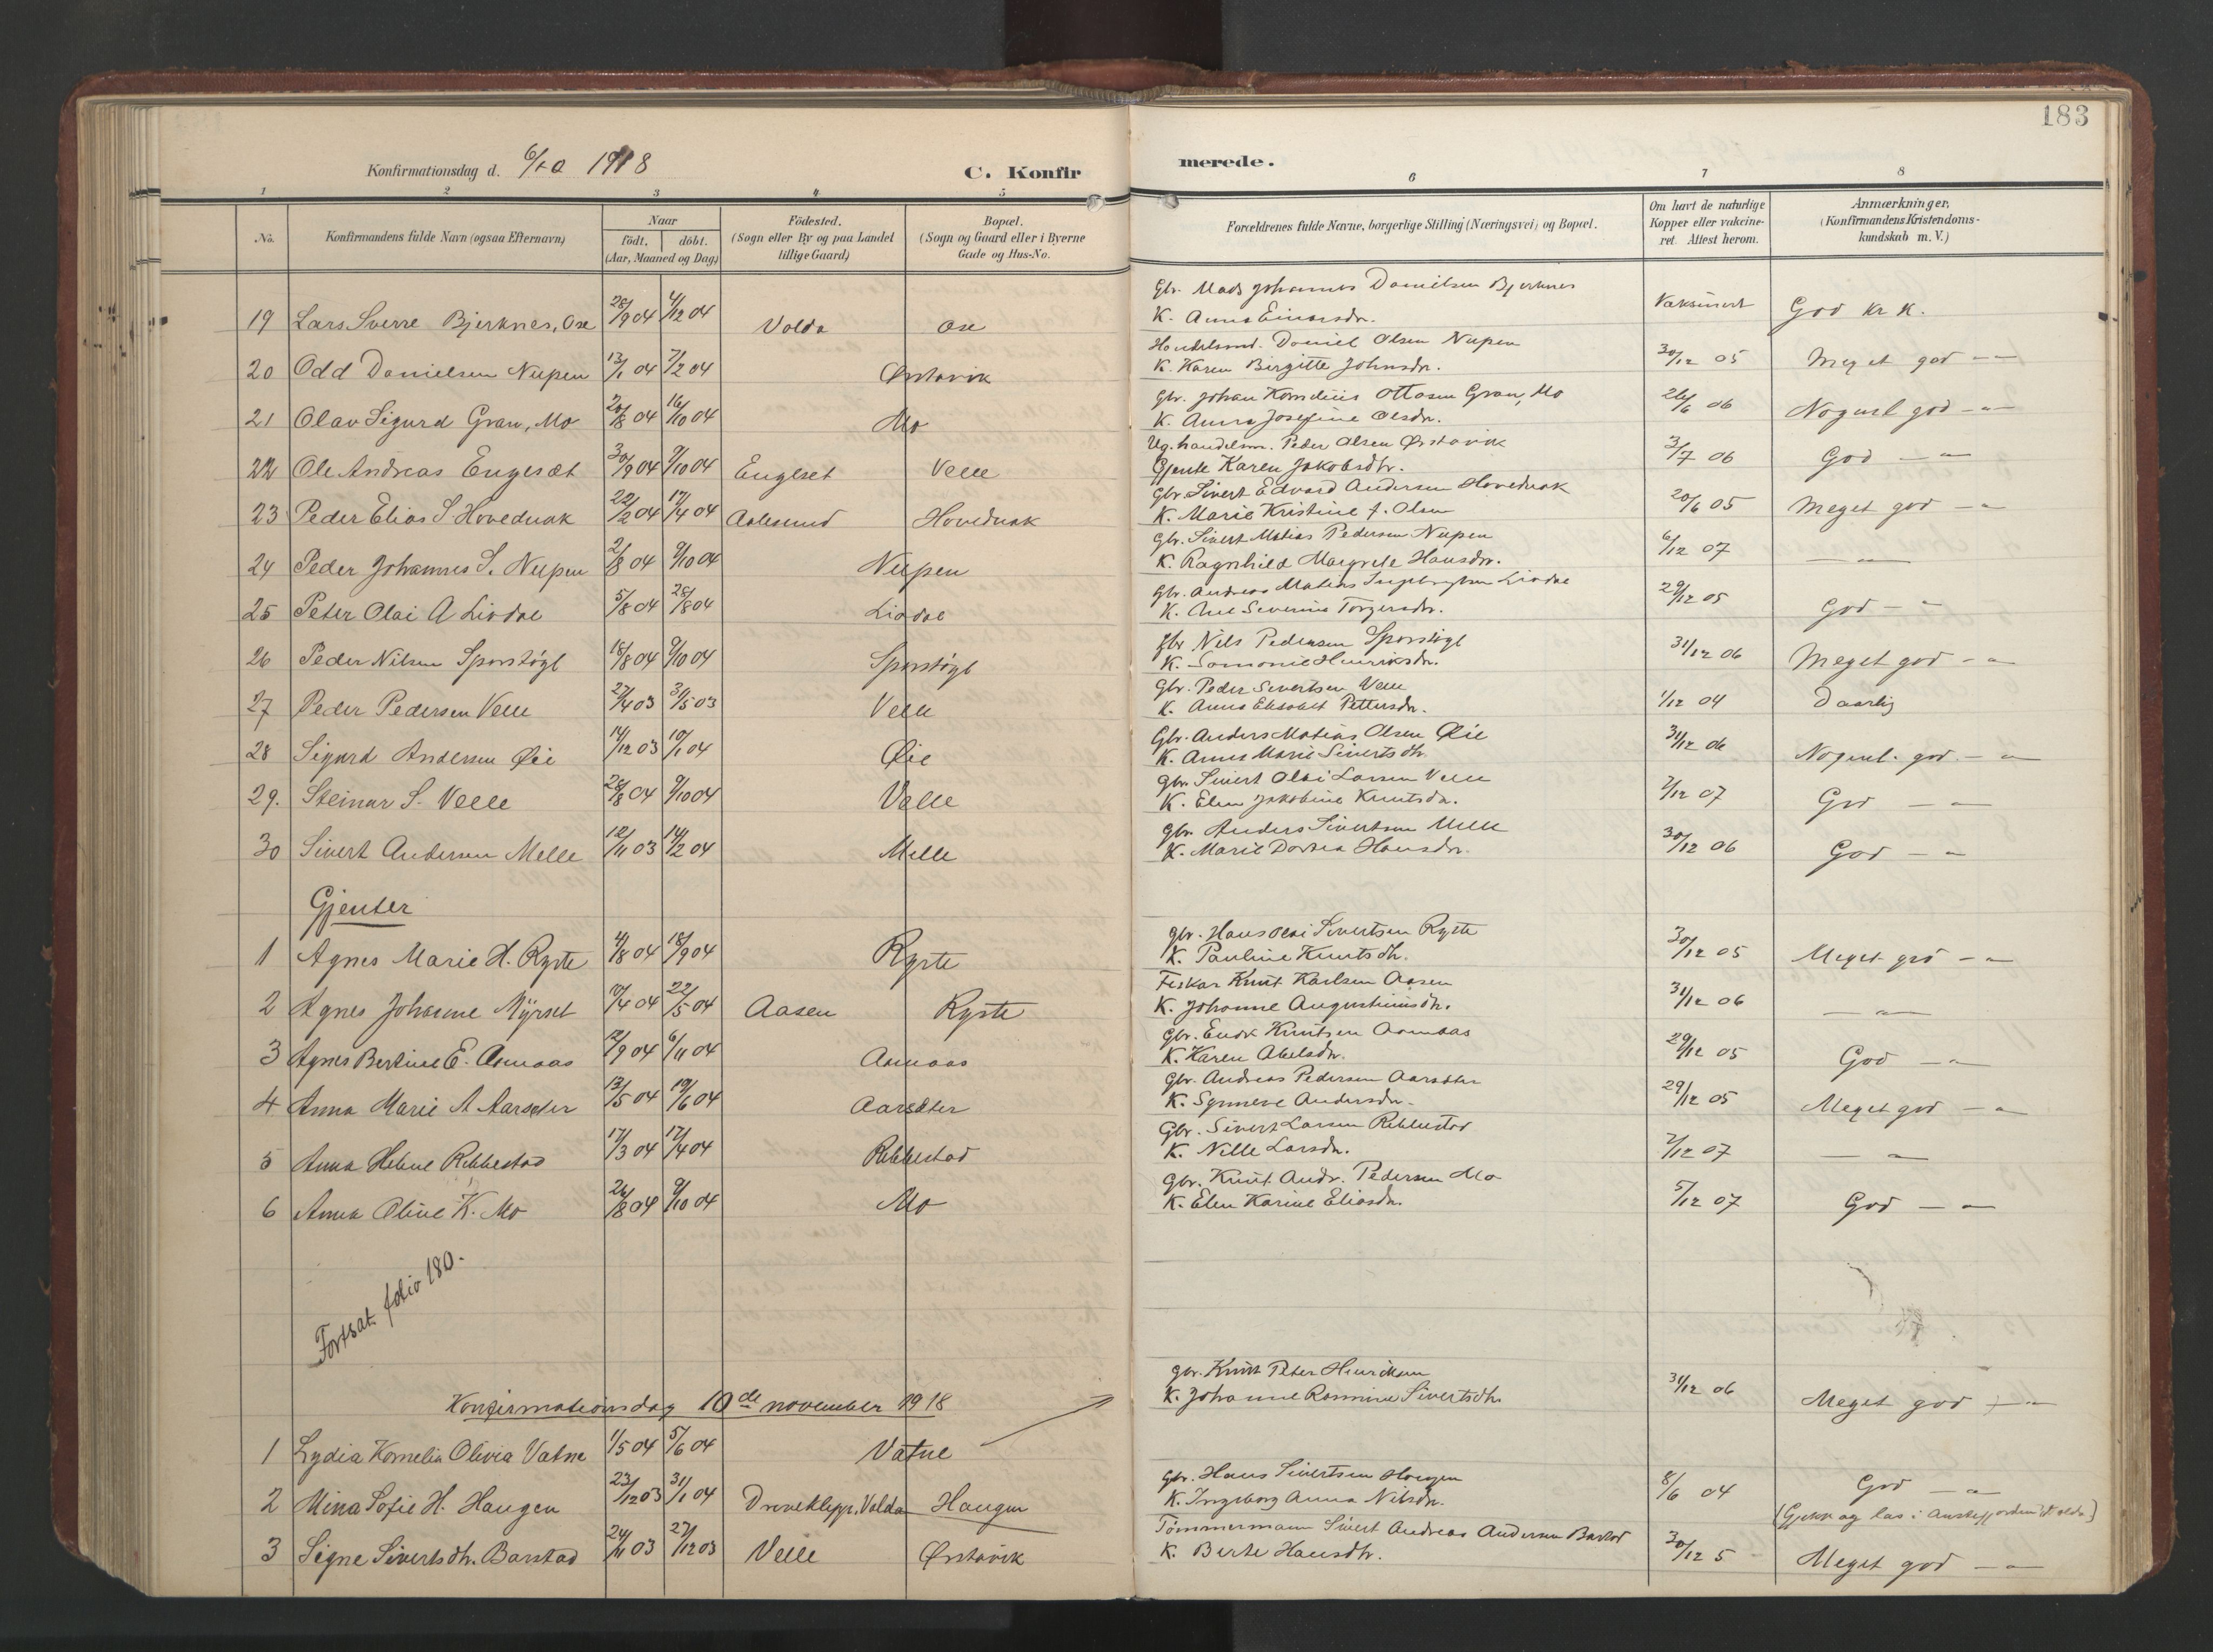 183
Konfirmationsdag d. 6/10 1918
C. Konfirmerede.
1 2 3 4 5 6 7 8
No.
Konfirmandens fulde Navn (ogsaa Efternavn)
Naar
födt. döbt.
(Aar, Maaned og Dag)
Födested.
(Sogn eller By og paa Landet
tillige Gaard)
Bopæl.
(Sogn og Gaard eller i Byerne
Gade og Hus-No.
Forældrenes fulde Navne, borgerlige Stilling (Næringsvei) og Bopæl.
Om havt de naturlige
Kopper eller vakcine-
ret. Attest herom.
Anmærkninger,
(Konfirmandens Kristendoms-
kundskab m. V.)
Gbr. Mads Johannes Danielsen Bjerknes
19 Lars Sverre Bjerknes, Ose 28/9 04 4/12 04 Volda Ose K. Anna Einarsdr. Vaksinert God kr. k.
Handelsmd. Daniel Olsen Nupen
20 Odd Danielsen Nupen 13/1 04 7/2 04 Ørstavik K. Karen Birgitte Johnsdr. 30/12 05 Meget god — " —
Gbr. Johan Kornelius Ottosen Gran, Mo
21 Olav Sigurd Gran, Mo 20/8 04 16/10 04 Mo K. Anna Josefine Olsdr. 26/6 06 Nogenl. god — " —
Ug. handelsm. Peder Olsen Ørstavik
22 Ole Andreas Engesæt 30/9 04 9/10 04 Engeset Velle Gjente Karen Jakobsdtr. 3/7 06 God — " —
Gbr. Sivert Edvard Andersen Hovednak
23 Peder Elias S. Hovednak 22/2 04 17/4 04 Aalesund Hovednak K. Marie Kristine f. Olsen 20/6 05 Meget god — " —
Gbr. Sivert Matias Pedersen Nupen
24 Peder Johannes S. Nupen 2/8 04 9/10 04 Nupen K. Ragnhild Margrete Hansdr. 6/12 07 — " —
Gbr. Andreas Matias Ingebrigtsen Liadal
25 Peter Olai A Liadal 5/8 04 28/8 04 Liadal K. Ane Severine Torgersdr. 29/12 05 God — " —
Gbr Nils Pedersen Sporstøyl
26 Peder Nilsen Sporstøyl 18/8 04 9/10 04 Sporstøyl K. Lomonie Henriksdr. 31/12 06 Meget god — " —
Gbr. Peder Sivertsen Velle
27 Peder Pedersen Velle 27/4 03 31/5 03 Velle K. Anna Elisabet Pettersdr. 1/12 04 Daarlig
Gbr. Anders Matias Olsen Øie
28 Sigurd Andersen Øie 14/12 03 10/1 04 Øie K. Anne Marie Sivertsdtr. 31/12 06 Nogenl. god — " —
Gbr. Sivert Olai Larsen Velle
29. Steinar S. Velle 28/8 04 9/10 04 Velle K. Elen Jakobine Knutsdr. 2/12 07 God — " —
Gbr. Anders Sivertsen Melle
30 Sivert Andersen Melle 12/11 03 14/2 04 Melle K. Marie Dortea Hansdr. 30/12 06 God — " —
Gjenter
Gbr. Hans Olai Sivertsen Ryste
1 Agnes Marie H. Ryste 4/8 04 18/9 04 Ryste K. Pauline Knutsdtr. 30/12 05 Meget god — " —
Fiskar Knut Karlsen Aasen
2 Agnes Johanne Myrset 10/4 04 22/5 04 Aasen Ryste K. Johanne Augustinusdtr. 31/12 06 — " —
Gbr. Endr. Knutsen Aamaas
3 Agnes Bertine E. Aamaas 12/9 04 6/11 04 Aamaas K. Karen Abelsdr. 29/12 05 God — " —
Gbr. Andreas Pedersen Aarsæter
4 Anna Marie A Aarsæter 13/5 04 19/6 04 Aarsæter K. Synneve Andersdr. 29/12 05 Meget god — " —
Gbr. Sivert Larsen Rebbestad
5 Anna Helene Rebbestad 17/3 04 17/4 04 Rebbestad K. Nille Larsdr. 7/12 07 — " —
Gbr. Knut Andr. Pedersen Mo
6 Anna Oline K. Mo 26/8 04 9/10 04 Mo K. Elen Karine Eliasdr. 5/12 07 God — " —
Fortsat. folio 180.
Konfirmationsdag 10de november 1918
Gbr. Knut Peter Henriksen
K. Johanne Rasmine Sivertsdtr. 31/12 06 Meget god — " —
1 Lydia Kornelia Olivia Vatne 1/5 04 5/6 04 Vatne
Gbr. Hans Sivertsen Haugen
2 Mina Sofie H. Haugen 23/12 03 31/1 04 Dreveklepp, Volda Haugen K. Ingeborg Anna Nilsdr. 8/6 04 God — " —
(Gjekk og las i Austefjorden, Volda)
Tömmermann Sivert Andreas Andersen Barstad
3 Signe Sivertsdtr. Barstad 24/11 03 27/12 03 Velle Ørstavik K. Berte Hansdtr. 30/12 5 Meget god — " —